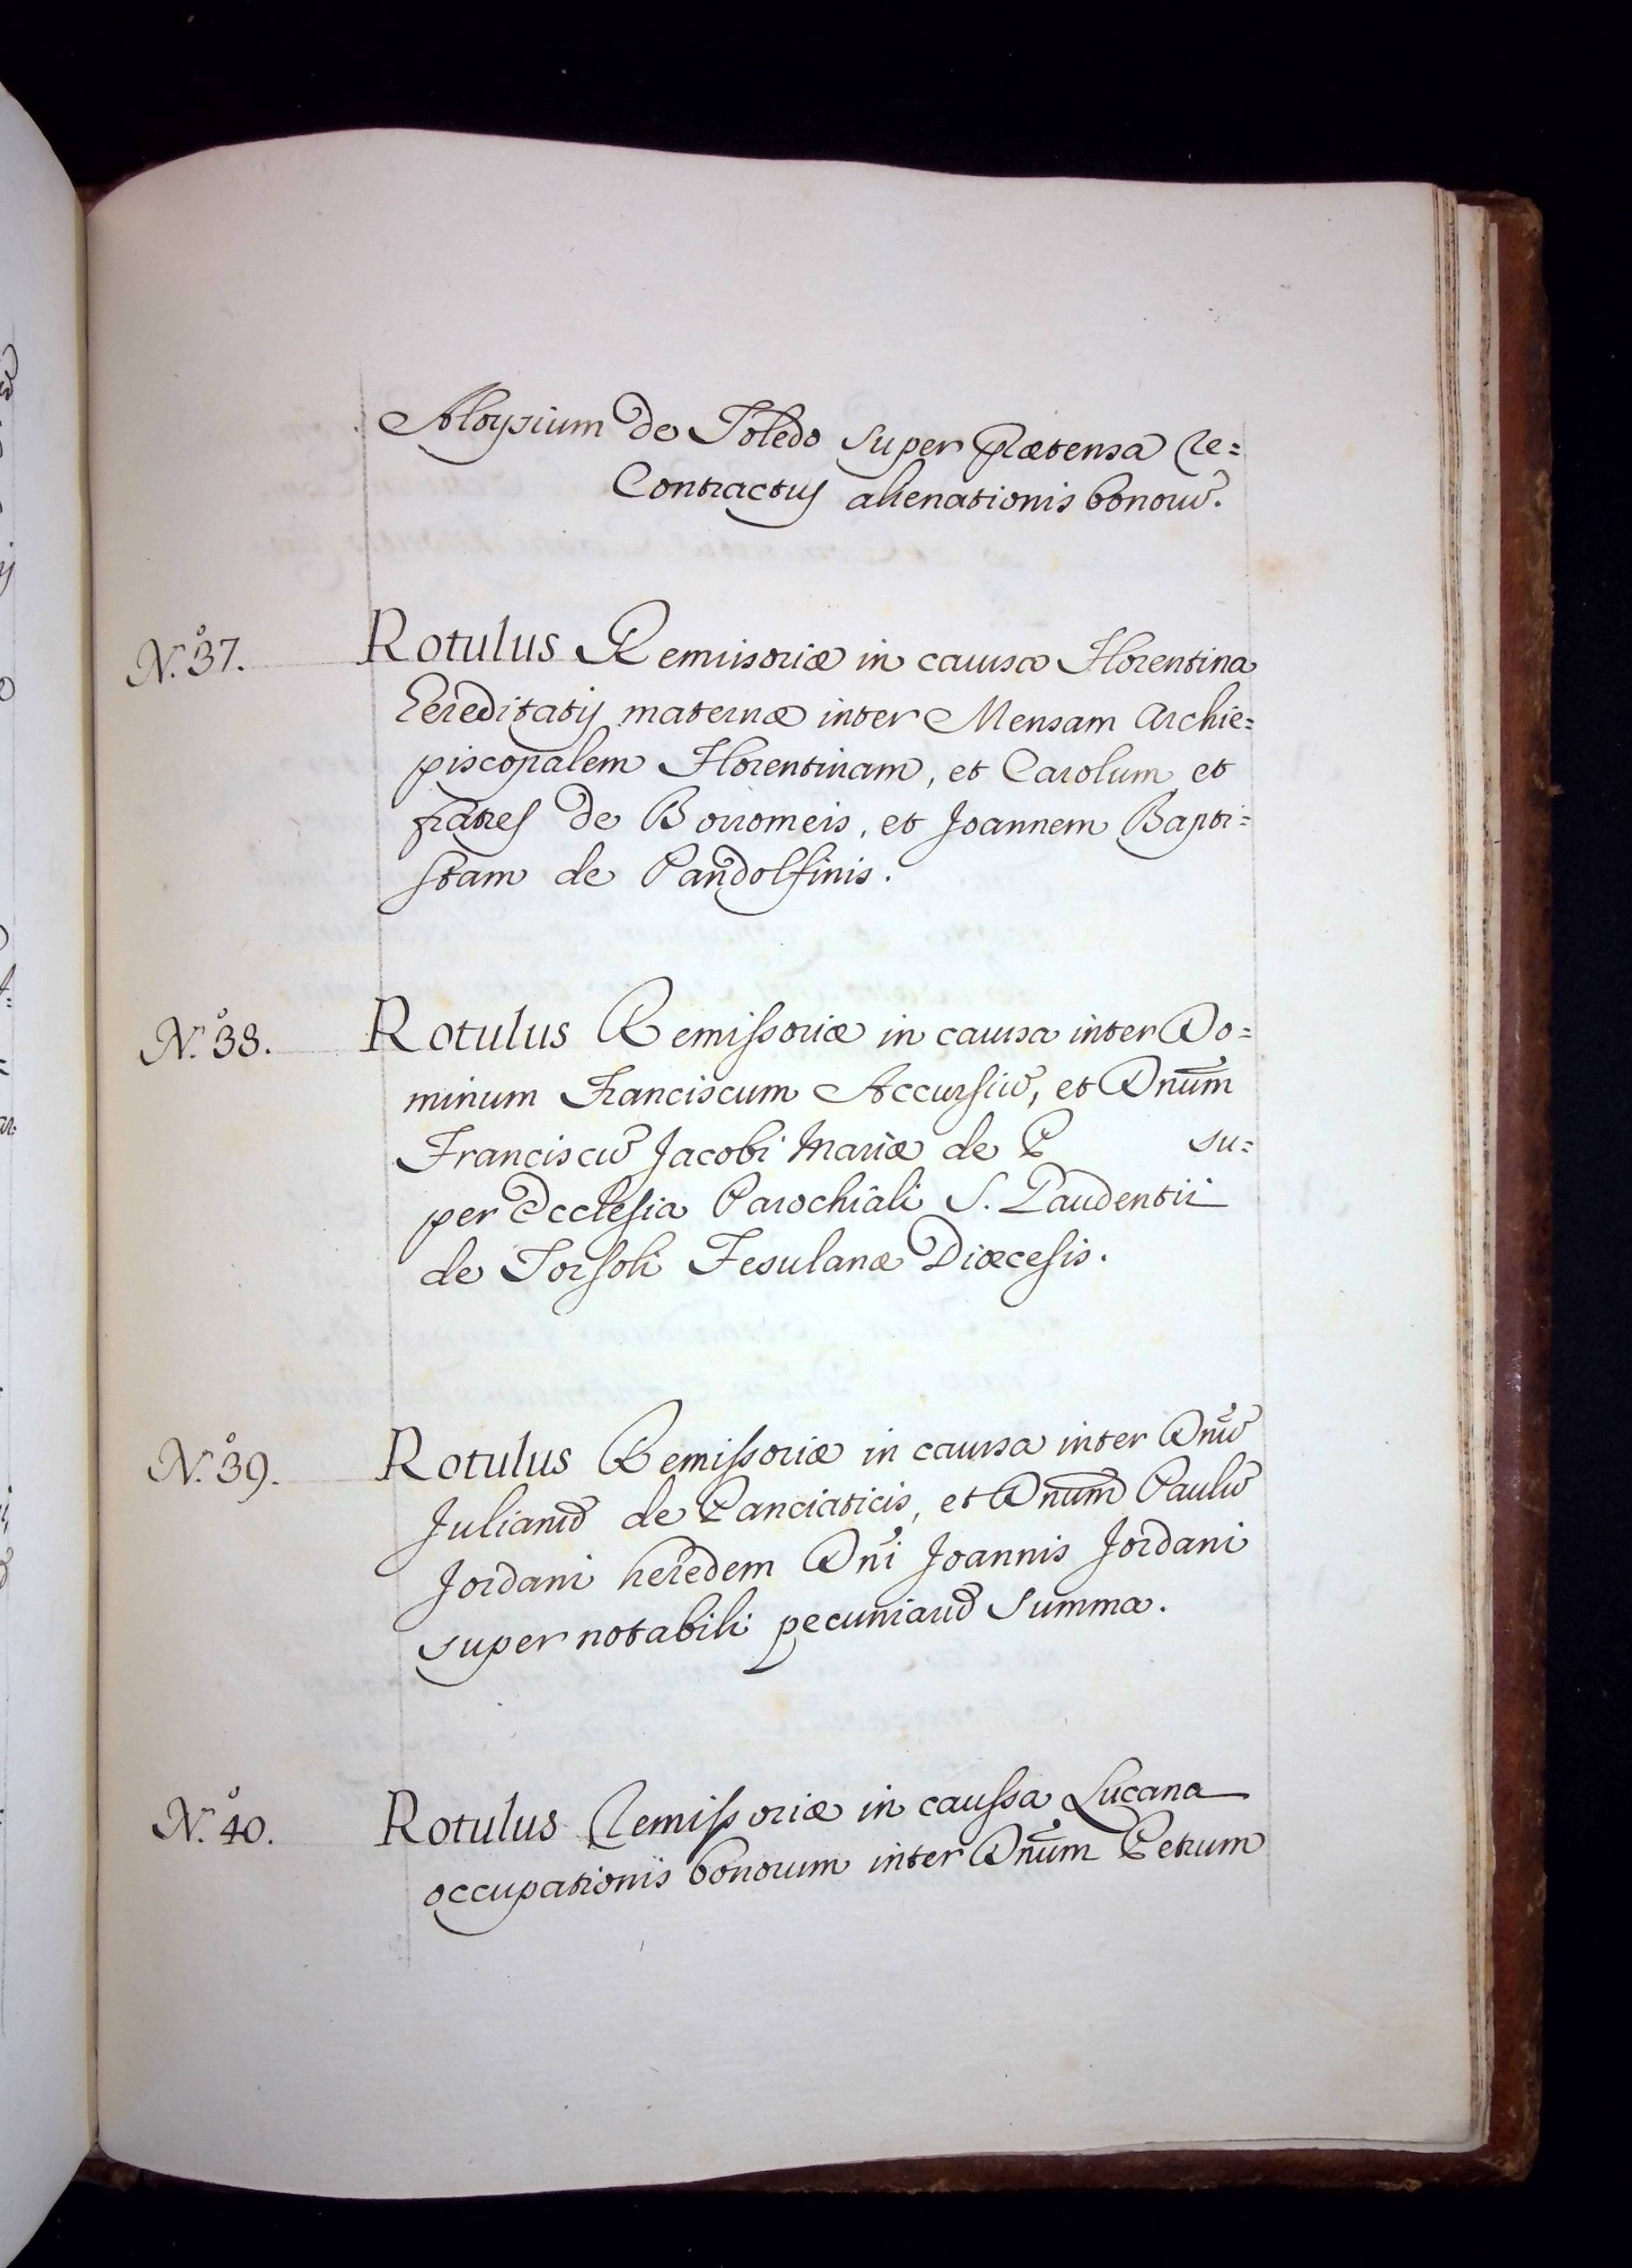 Aloysium de Toledo super prætensa re=
Contractus alienationis bonorũ.
N.º 37. Rotulus Remissoriæ in caussa Florentina
Hereditatis maternæ inter Mensam Archie=
piscopalem Florentinam, et Carolum et
fratres de Borromeis, et Joannem Bapti=
stam de Pandolfinis.
N.º 38. Rotulus Remissoriæ in caussa inter Do=
minum Franciscum Accursiũ, et Dnũm
Franciscũ Jacobi Mariæ de P su=
per Ecclesia Parochiali S. Gaudentii
de Torsoli Fesulanæ Diœcesis.
N.º 39. Rotulus Remissoriæ in caussa inter Dnũ
Julianũ de Panciaticis, et Dnũm Paulũ
Jordani heredem Dñi Joannis Jordani
super notabili pecuniarũ summa.
N.º 40. Rotulus Remissoriæ in caussa Lucana
occupationis bonorum inter Dnũm Petrum